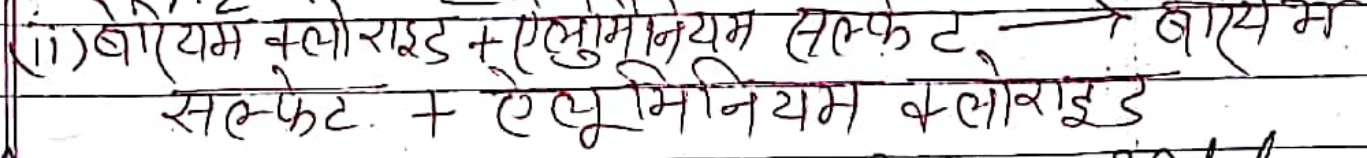 (ii) बेरियम क्लोराइड + ऐलुमिनियम सल्फेट → बेरियम
सल्फेट + ऐलूमिनियम क्लोराइड